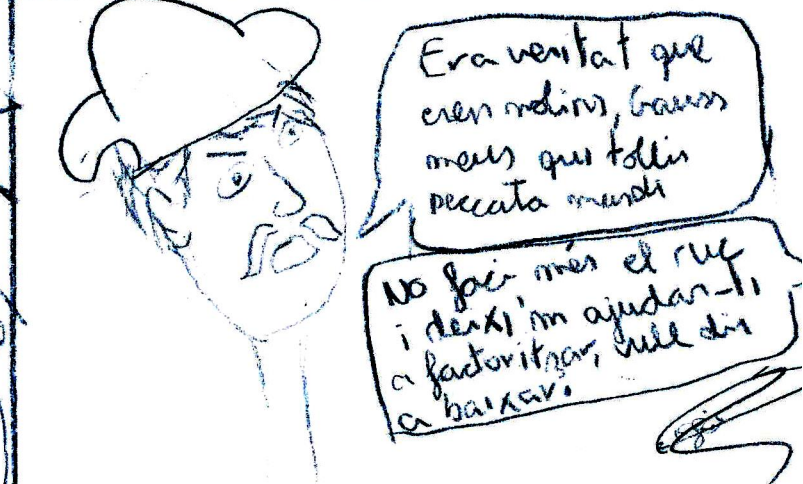 Era veritat que
eren molins, Gauss
meus qui tollis
peccata mundi
No faci més el ruc
i deixi'm ajudar-li
a factoritzar, vull dir
a baixar.